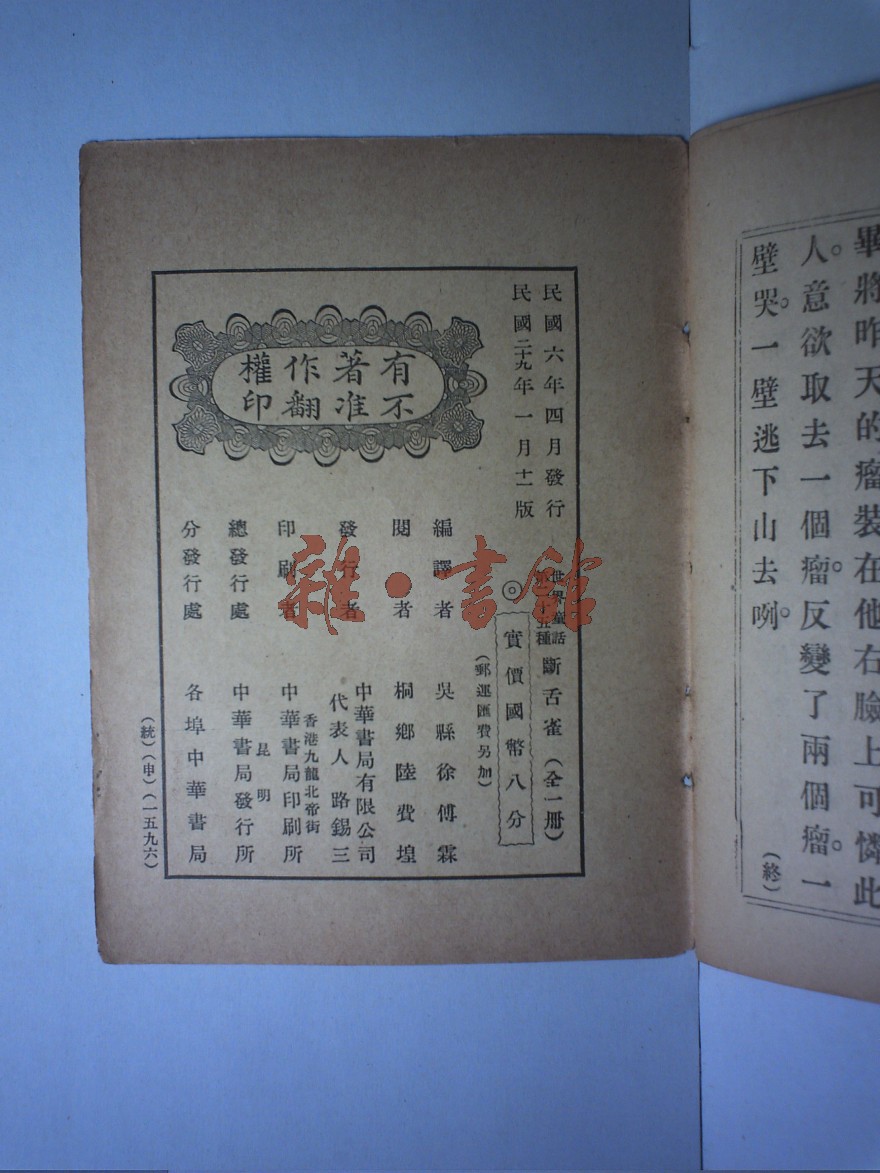 畢將昨天的瘤裝在他右臉上可憐此
人。意欲取去一個瘤。反變了兩個瘤。一
壁哭。一壁逃下山去咧。
(終)
民國六年四月發行
民國二十九年一月十一版
有著作權
不准翻印
世界童話
種
斷舌雀(全一冊)
◎實價國幣八分
(郵運匯費另加)
編譯者 吳縣徐傅霖
閱者 桐鄉陸費堭
發行者 中華書局有限公司
代表人 路錫三
印刷者 香港九龍北帝街
中華書局印刷所
總發行處 昆明
中華書局發行所
分發行處 各埠中華書局
(統)(申)(一五九六)
雜·書館